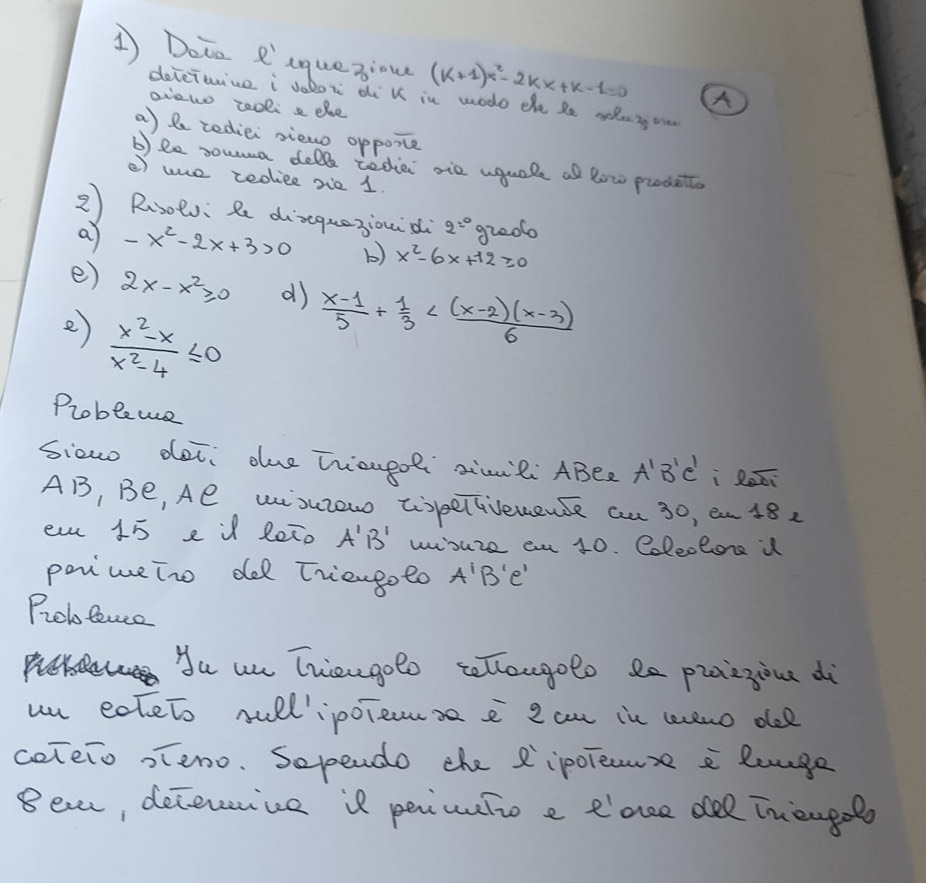 1) Data l'equazione (K+1)x²-2Kx+K-1=0
determina i valori di K in modo che le soluzioni
siano reali e che
A
a) le radici siano opposte
b) la somma delle radici sia uguale al loro prodotto
c) una radice sia 1.
2) Risolvi le disequazioni di 2º grado
a) -x²-2x+3>0 b) x²-6x+12≥0
c) 2x-x²≥0 d) x-1/5 + 1/3 < (x-2)(x-3)/6
e) x²-x/x²-4 ≤0
Problema
Siano dati due triangoli simili ABC e A'B'C' i lati
AB, BC, AC misurano rispettivamente cm 30, cm 18 e
cm 15 e il lato A'B' misura cm 10. Calcolare il
perimetro del triangolo A'B'C'
Problema
In un triangolo rettangolo la proiezione di
un cateto sull'ipotenusa è 2 cm in meno del
cateto stesso. Sapendo che l'ipotenusa è lunga
8 cm, determina il perimetro e l'area del triangolo